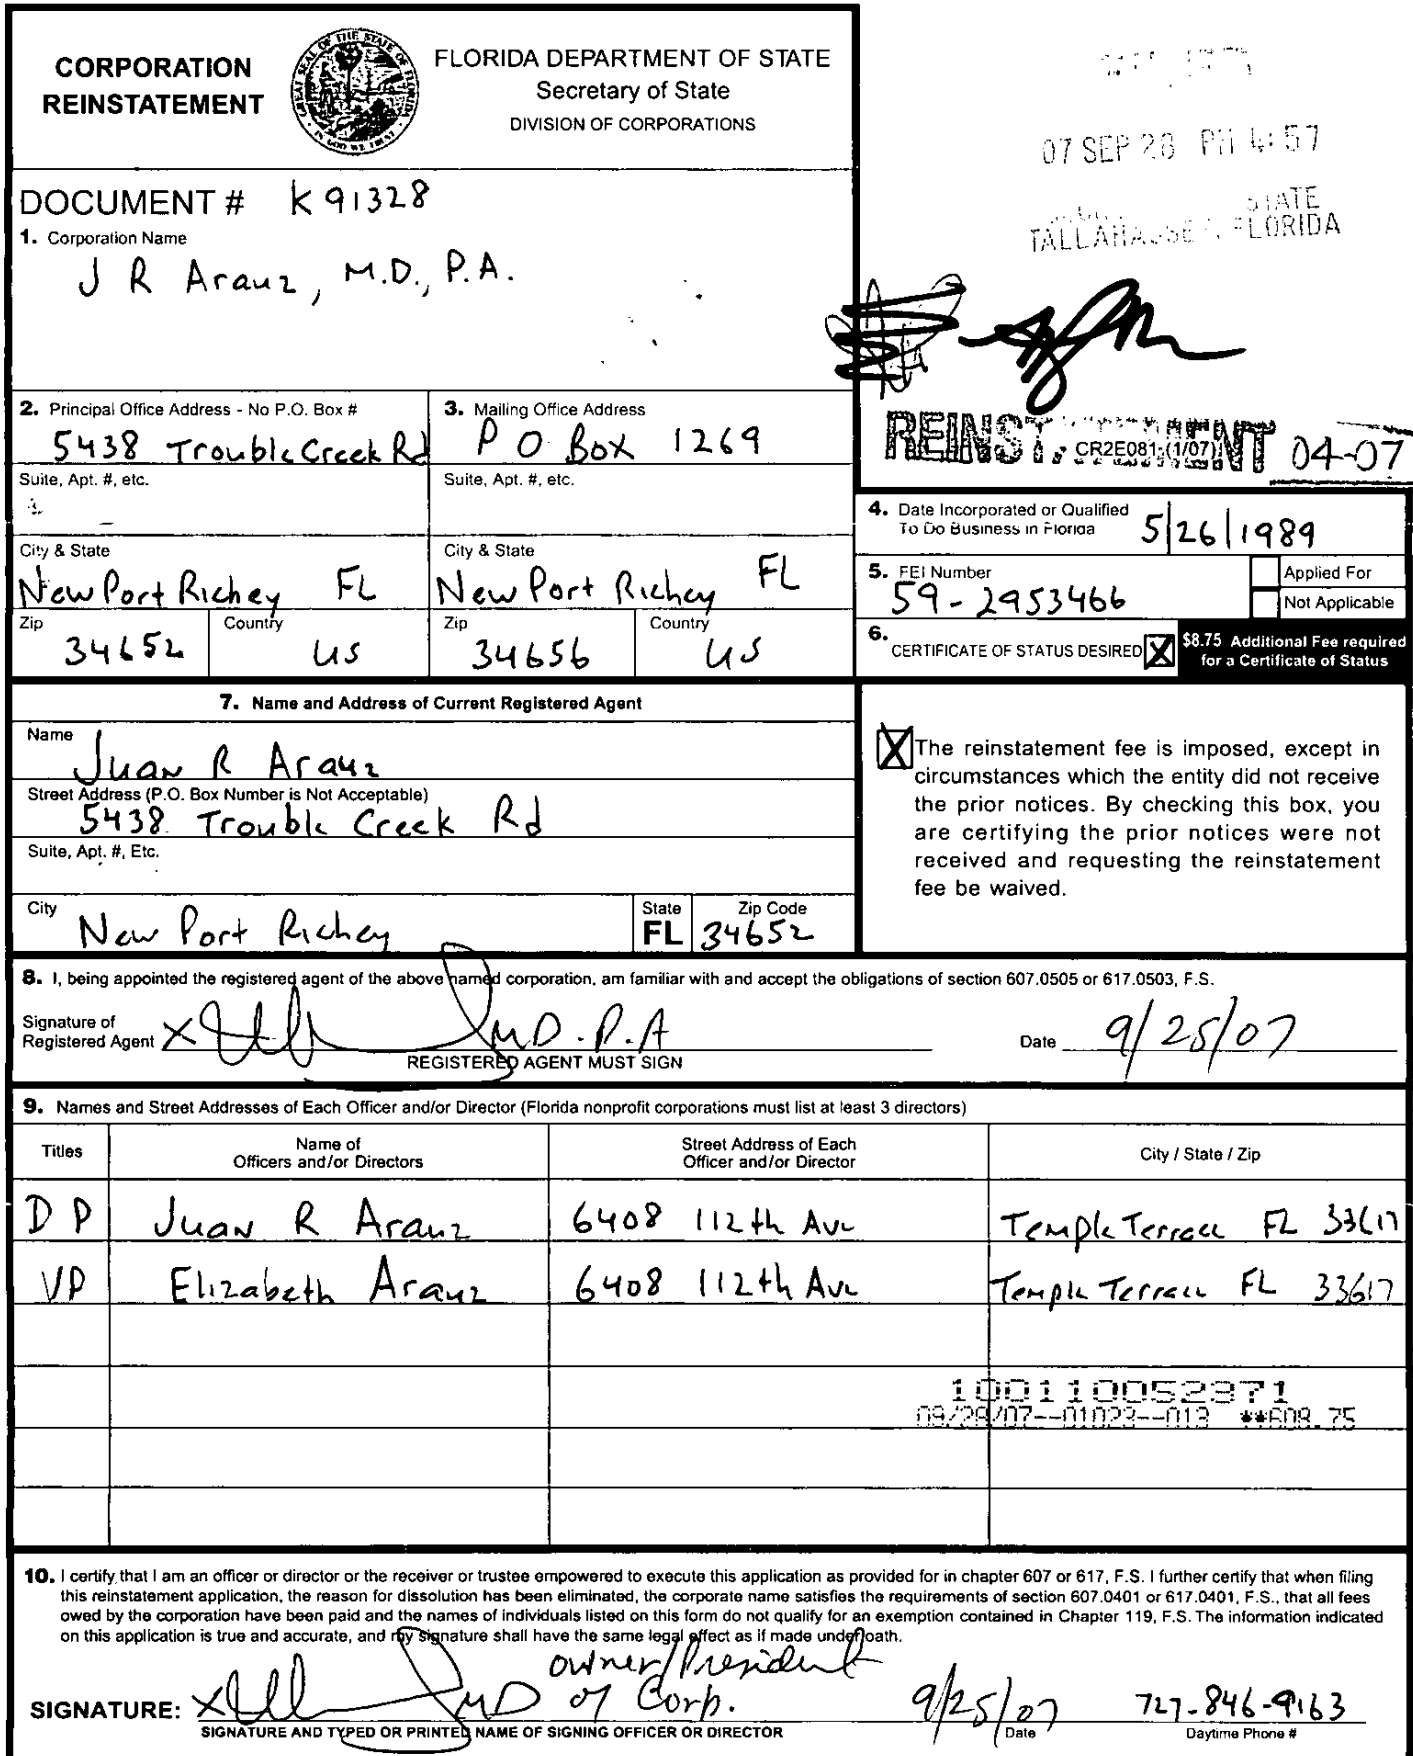 CORPORATION
REINSTATEMENT
FLORIDA DEPARTMENT OF STATE
Secretary of State
DIVISION OF CORPORATIONS
07 SEP 28 PM 4:57
STATE
TALLAHASSEE, FLORIDA
DOCUMENT # K91328
1. Corporation Name
J R Arauz, M.D., P.A.
REINSTATEMENT 04-07
CR2E081 (1/07)
2. Principal Office Address - No P.O. Box #
5438 Trouble Creek Rd
3. Mailing Office Address
P O Box 1269
Suite, Apt. #, etc.
Suite, Apt. #, etc.
City & State
New Port Richey FL
City & State
New Port Richey FL
Zip
34652
Country
US
Zip
34656
Country
US
4. Date Incorporated or Qualified
To Do Business in Florida
5/26/1989
5. FEI Number
59-2953466
Applied For
Not Applicable
6. CERTIFICATE OF STATUS DESIRED X
$8.75 Additional Fee required
for a Certificate of Status
7. Name and Address of Current Registered Agent
Name
Juan R Arauz
Street Address (P.O. Box Number is Not Acceptable)
5438 Trouble Creek Rd
Suite, Apt. #, Etc.
City
New Port Richey
State
FL
Zip Code
34652
X The reinstatement fee is imposed, except in
circumstances which the entity did not receive
the prior notices. By checking this box, you
are certifying the prior notices were not
received and requesting the reinstatement
fee be waived.
8. I, being appointed the registered agent of the above named corporation, am familiar with and accept the obligations of section 607.0505 or 617.0503, F.S.
Signature of
Registered Agent
X MD. P.A
REGISTERED AGENT MUST SIGN
Date 9/25/07
9. Names and Street Addresses of Each Officer and/or Director (Florida nonprofit corporations must list at least 3 directors)
Titles
Name of
Officers and/or Directors
Street Address of Each
Officer and/or Director
City / State / Zip
DP Juan R Arauz 6408 112th Ave Temple Terrace FL 33617
VP Elizabeth Arauz 6408 112th Ave Temple Terrace FL 33617
100110052971
09/28/07--01023--013 **608.75
10. I certify that I am an officer or director or the receiver or trustee empowered to execute this application as provided for in chapter 607 or 617, F.S. I further certify that when filing
this reinstatement application, the reason for dissolution has been eliminated, the corporate name satisfies the requirements of section 607.0401 or 617.0401, F.S., that all fees
owed by the corporation have been paid and the names of individuals listed on this form do not qualify for an exemption contained in Chapter 119, F.S. The information indicated
on this application is true and accurate, and my signature shall have the same legal effect as if made under oath.
owner/President
SIGNATURE: X MD of Corp. 9/25/07 727-846-9163
SIGNATURE AND TYPED OR PRINTED NAME OF SIGNING OFFICER OR DIRECTOR
Date
Daytime Phone #